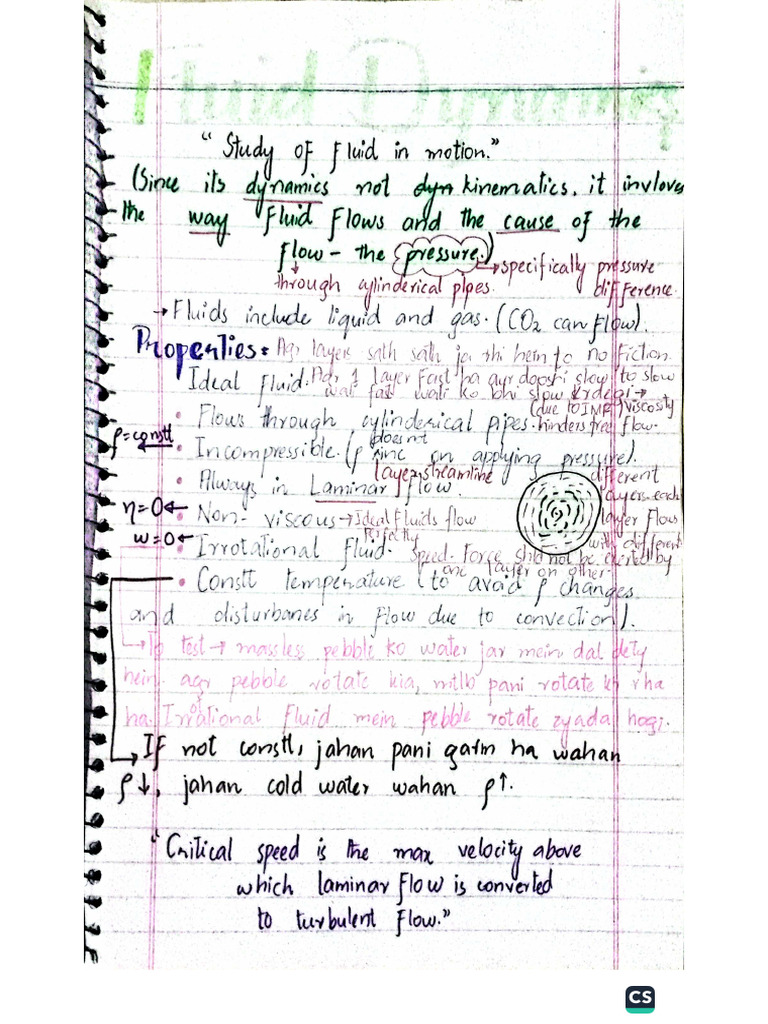 Fluid Dynamics
"Study of fluid in motion."
(Since its dynamics not dyn kinematics, it invloves
the way fluid flows and the cause of the
flow - the pressure.)
→specifically pressure
difference.
through cylinderical pipes.
→Fluids include liquid and gas. (CO2 can flow).
Properties: Agr layers sath sath ja rhi hein to no fiction.
Ideal Fluid. Agr 1 layer fast ha aur doosri slow to slow
wali fast wali ko bhi slow krdegi→
(due to IMF) viscosity
• Flows through cylinderical pipes. hinders free flow.
ρ=constt
• Incompressible. (ρ doesnt inc on applying pressure).
layer streamline
• Always in Laminar flow.
different
layers each
layer flows
with different
speed. Force shld not be exerted by
one layer on other
η=0← • Non- viscous→Ideal fluids flow
perfectly
w=0← • Irrotational fluid.
• Constt temperature (to avoid ρ changes
and disturbanes in flow due to convection).
→To test → massless pebble ko water jar mein dal dety
hein. agr pebble rotate kia, mtlb pani rotate kr rha
ha. Irrotational fluid mein pebble rotate zyada hogi.
→If not constt, jahan pani garm ha wahan
ρ↓, jahan cold water wahan ρ↑.
"Critical speed is the max velocity above
which laminar flow is converted
to turbulent flow."
CS